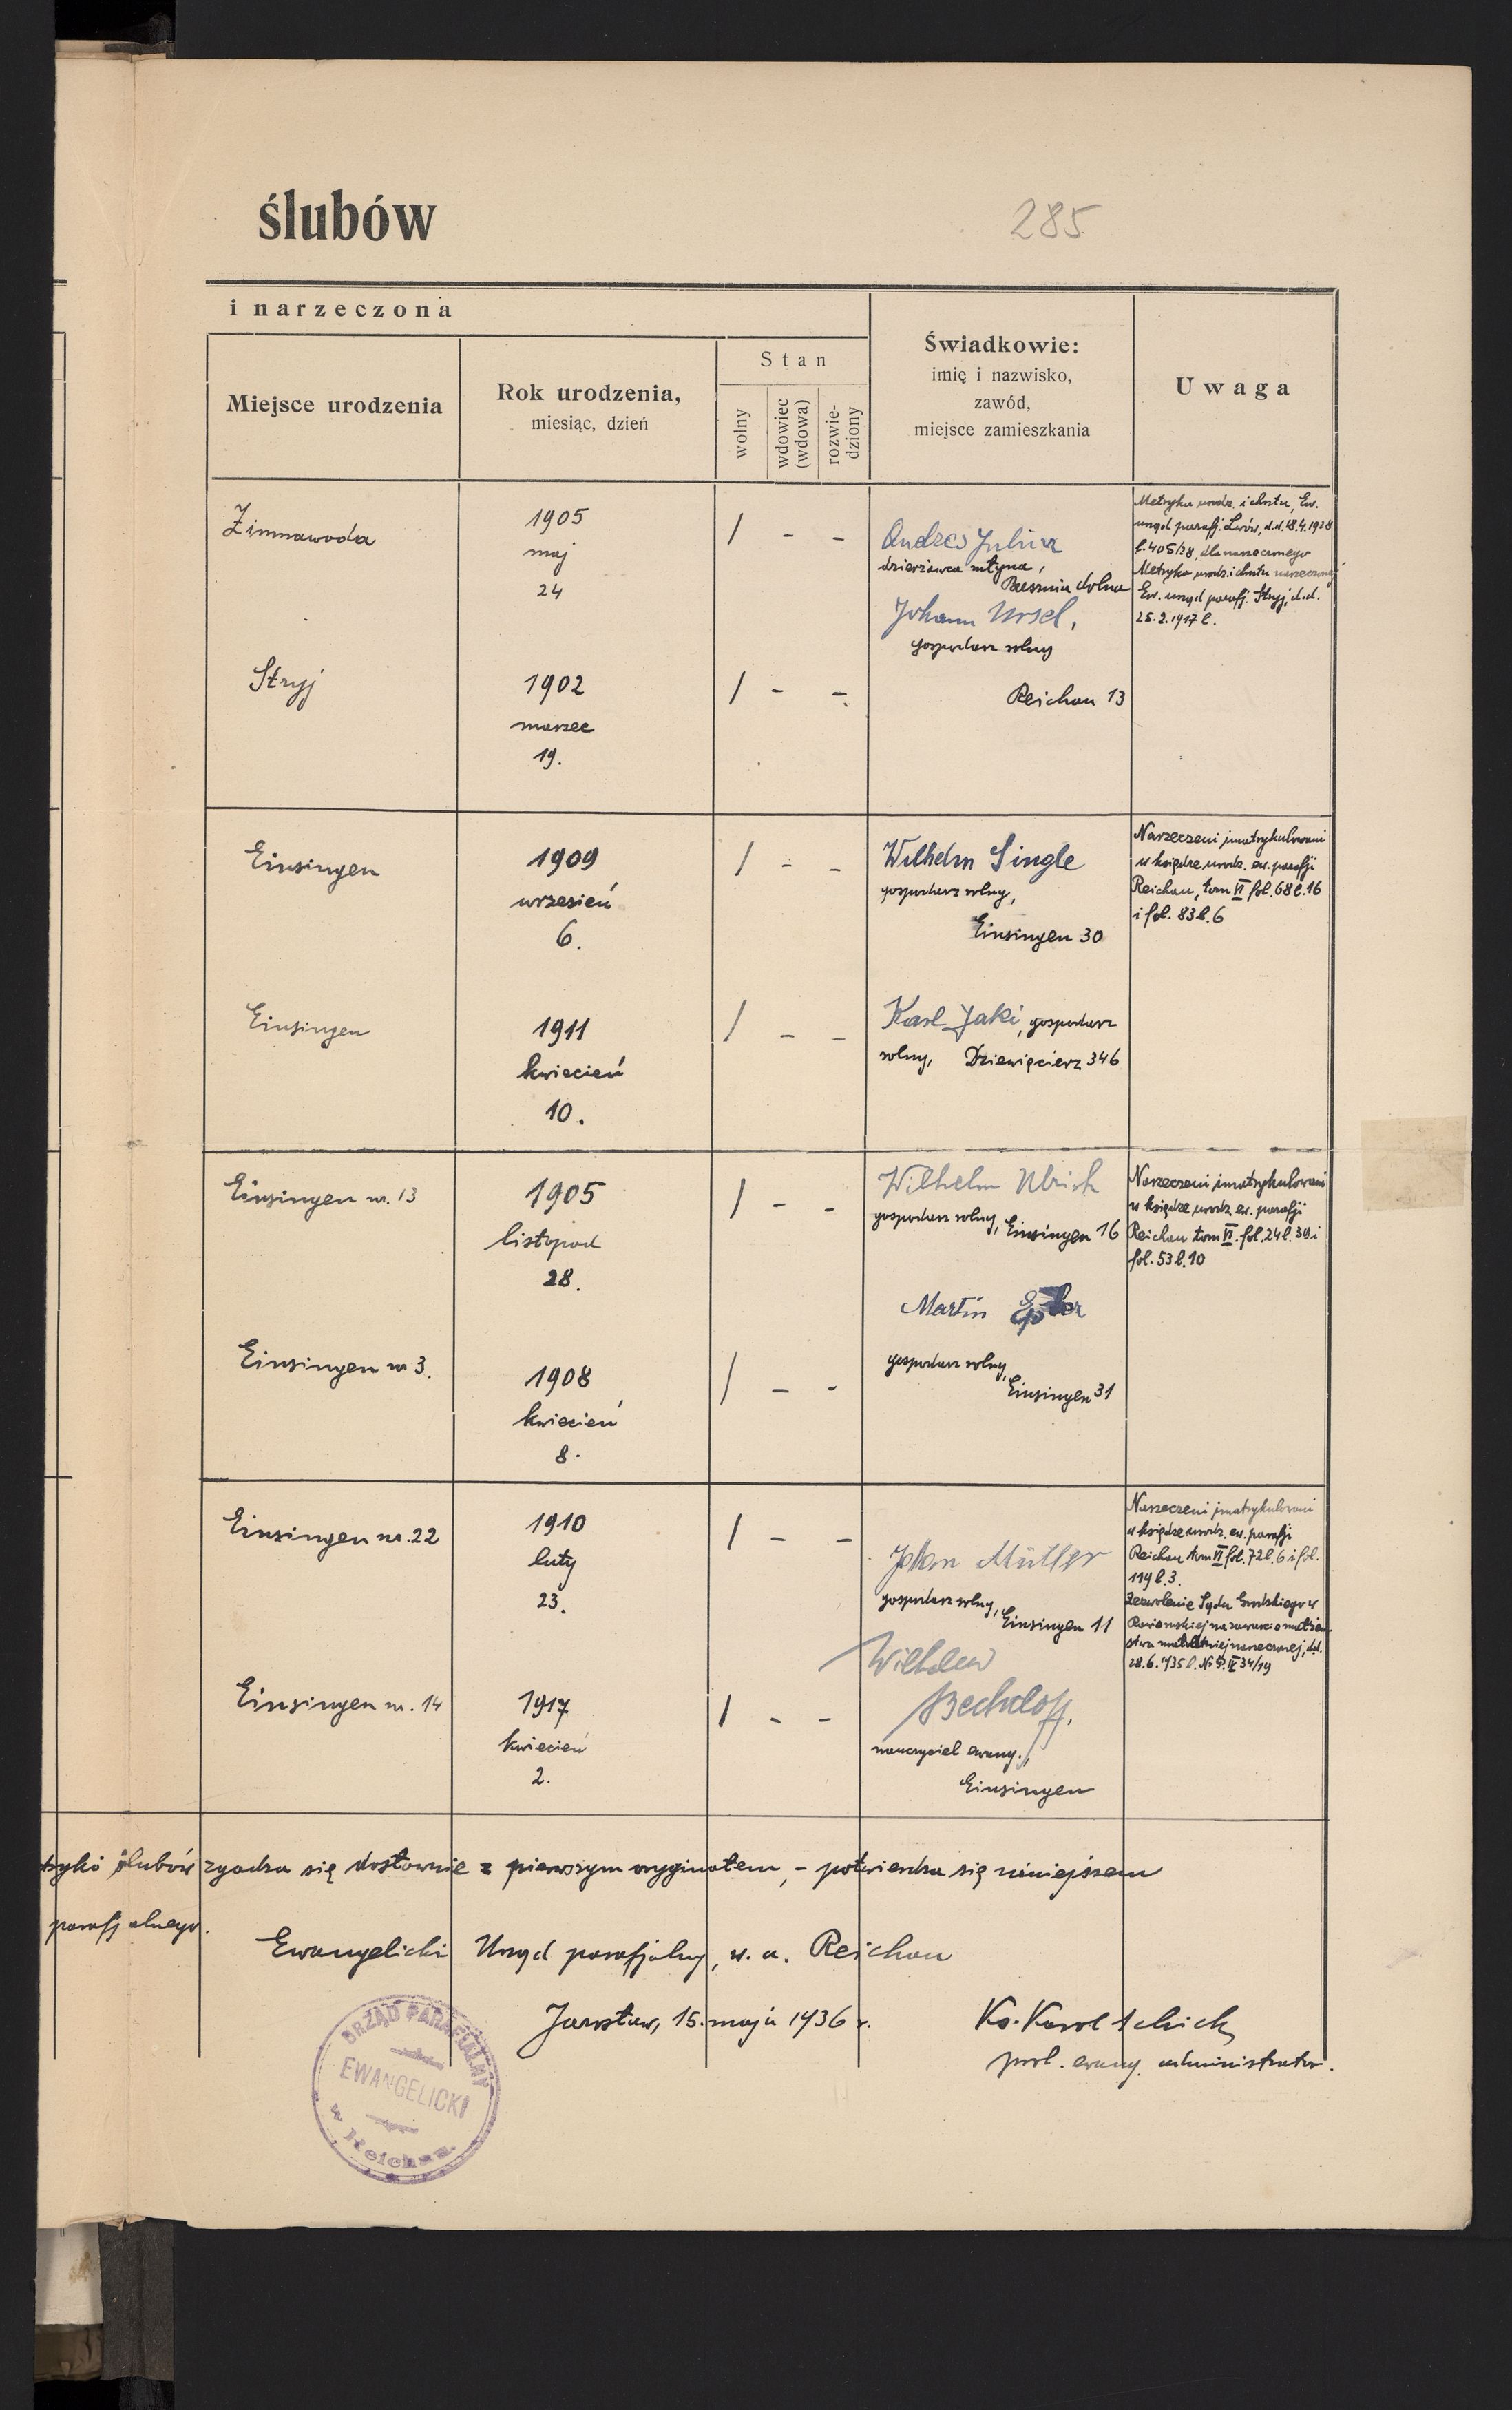 ślubów
285
i narzeczona
Miejsce urodzenia
Rok urodzenia,
miesiąc, dzień
Stan
wolny
wdowiec
(wdowa)
rozwie-
dziony
Świadkowie:
imię i nazwisko,
zawód,
miejsce zamieszkania
Uwaga
Zimnawoda
1905
maj
24
/ - -
Andres
dzierżawca młyna,
dolna
Johann Ursel,
gospodarz rolny
Reichau 13
Metryka urodz. i chrztu, Ew.
urząd parafj. Lwów, d.d. 18.4.1928
l. 405/28, dla narzeczonego
Metryka urodz. i chrztu narzeczonej
Ew. urząd parafj. Stryj, d.d.
25.2.1917 l.
Stryj
1902
marzec
19.
/ - -
Einsingen
1909
wrzesień
6.
/ - -
Wilhelm Single
gospodarz rolny,
Einsingen 30
Narzeczeni imatrykulowani
w księdze urodz. ew. parafji
Reichau, tom VI fol. 68 l. 16
i fol. 83 l. 6
Einsingen
1911
kwiecień
10.
/ - -
Karl Jaki, gospodarz
rolny, Dziewięcierz 346
Einsingen nr. 13
1905
listopad
28.
/ - -
Wilhelm Ulrich
gospodarz rolny, Einsingen 16
Martin
gospodarz rolny,
Einsingen 31
Narzeczeni imatrykulowani
w księdze urodz. ew. parafji
Reichau tom VI. fol. 24 l. 39 i
fol. 53 l. 10
Einsingen nr 3.
1908
kwiecień
8.
/ - -
Einsingen nr. 22
1910
luty
23.
/ - -
Johan Müller
gospodarz rolny,
Einsingen 11
Wilhelm
Bechtloff,
nauczyciel ewang.,
Einsingen
Narzeczeni imatrykulowani
w księdze urodz. ew. parafji
Reichau tom VI fol. 72 l. 6 i fol.
119 l. 3.
Zezwolenie Sądu Grodzkiego w
Rawie na zawarcie małżeń-
stwa małoletniej narzeczonej, d.d.
28.6.1935 l.
Einsingen nr. 14
1917
kwiecień
2.
/ - -
ślubów zgadza się dosłownie z pierwszym oryginałem, - potwierdza się niniejszem
parafjalnego.
Ewangelicki Urząd parafjalny, w. a. Reichau
Jarosław, 15. maja 1936 r.
Ks. Karol Schick
ewang. administrator.
URZĄD PARAFIALNY
EWANGELICKI
w Reichau